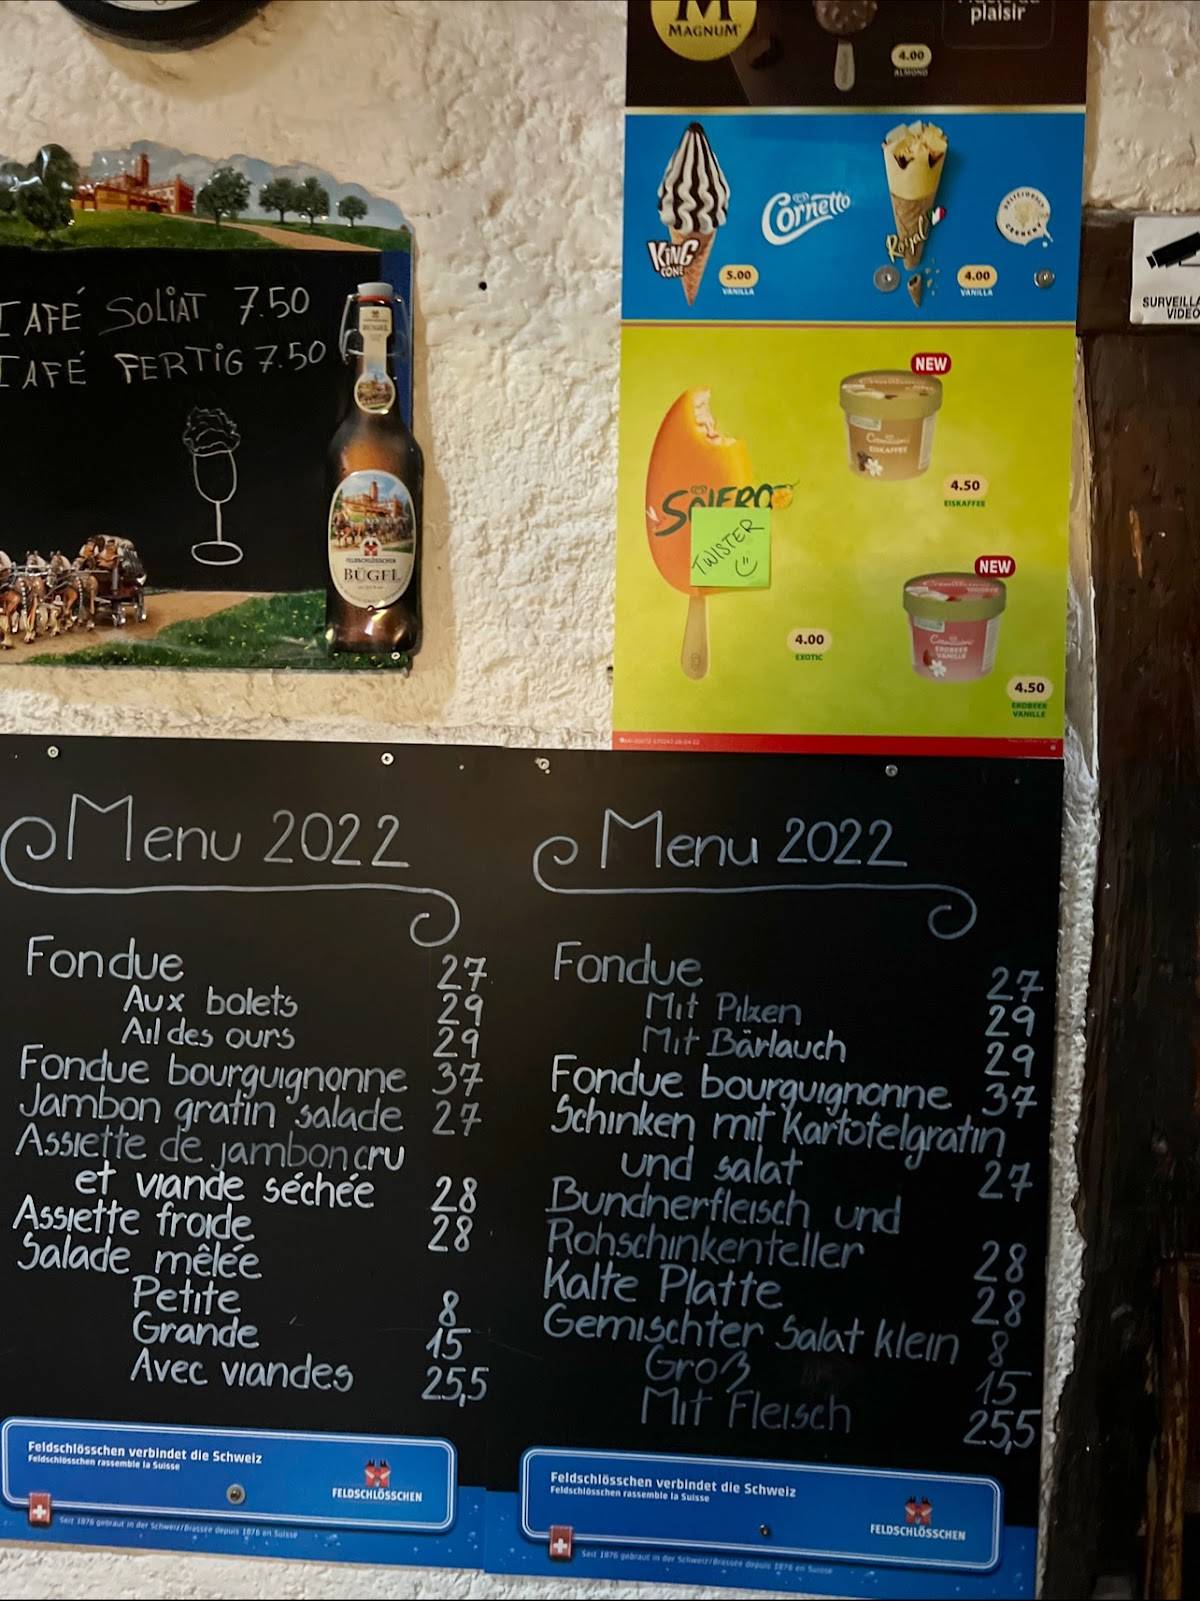 MAGNUM
plaisir
4.00
ALMOND
KING CONE
5.00
VANILLA
Cornetto
Royal
4.00
VANILLA
SURVEILLA
VIDEO
CAFÉ SOLIAT 7.50
CAFÉ FERTIG 7.50
BÜGEL
FELDSCHLÖSSCHEN
BÜGEL
NEW
Cremissimo
EISKAFFEE
4.50
EISKAFFEE
SOLERO
TWISTER
4.00
EXOTIC
NEW
Cremissimo
ERDBEER
VANILLE
4.50
ERDBEER
VANILLE
Menu 2022
Fondue 27
Aux bolets 29
Ail des ours 29
Fondue bourguignonne 37
Jambon gratin salade 27
Assiette de jambon cru
et viande séchée 28
Assiette froide 28
Salade mêlée
Petite 8
Grande 15
Avec viandes 25,5
Feldschlösschen verbindet die Schweiz
Feldschlösschen rassemble la Suisse
FELDSCHLÖSSCHEN
Seit 1876 gebraut in der Schweiz/Brassée depuis 1876 en Suisse
Menu 2022
Fondue 27
Mit Pilzen 29
Mit Bärlauch 29
Fondue bourguignonne 37
Schinken mit Kartofelgratin
und salat 27
Bundnerfleisch und
Rohschinkenteller 28
Kalte Platte 28
Gemischter Salat klein 8
Groß 15
Mit Fleisch 25,5
Feldschlösschen verbindet die Schweiz
Feldschlösschen rassemble la Suisse
FELDSCHLÖSSCHEN
Seit 1876 gebraut in der Schweiz/Brassée depuis 1876 en Suisse